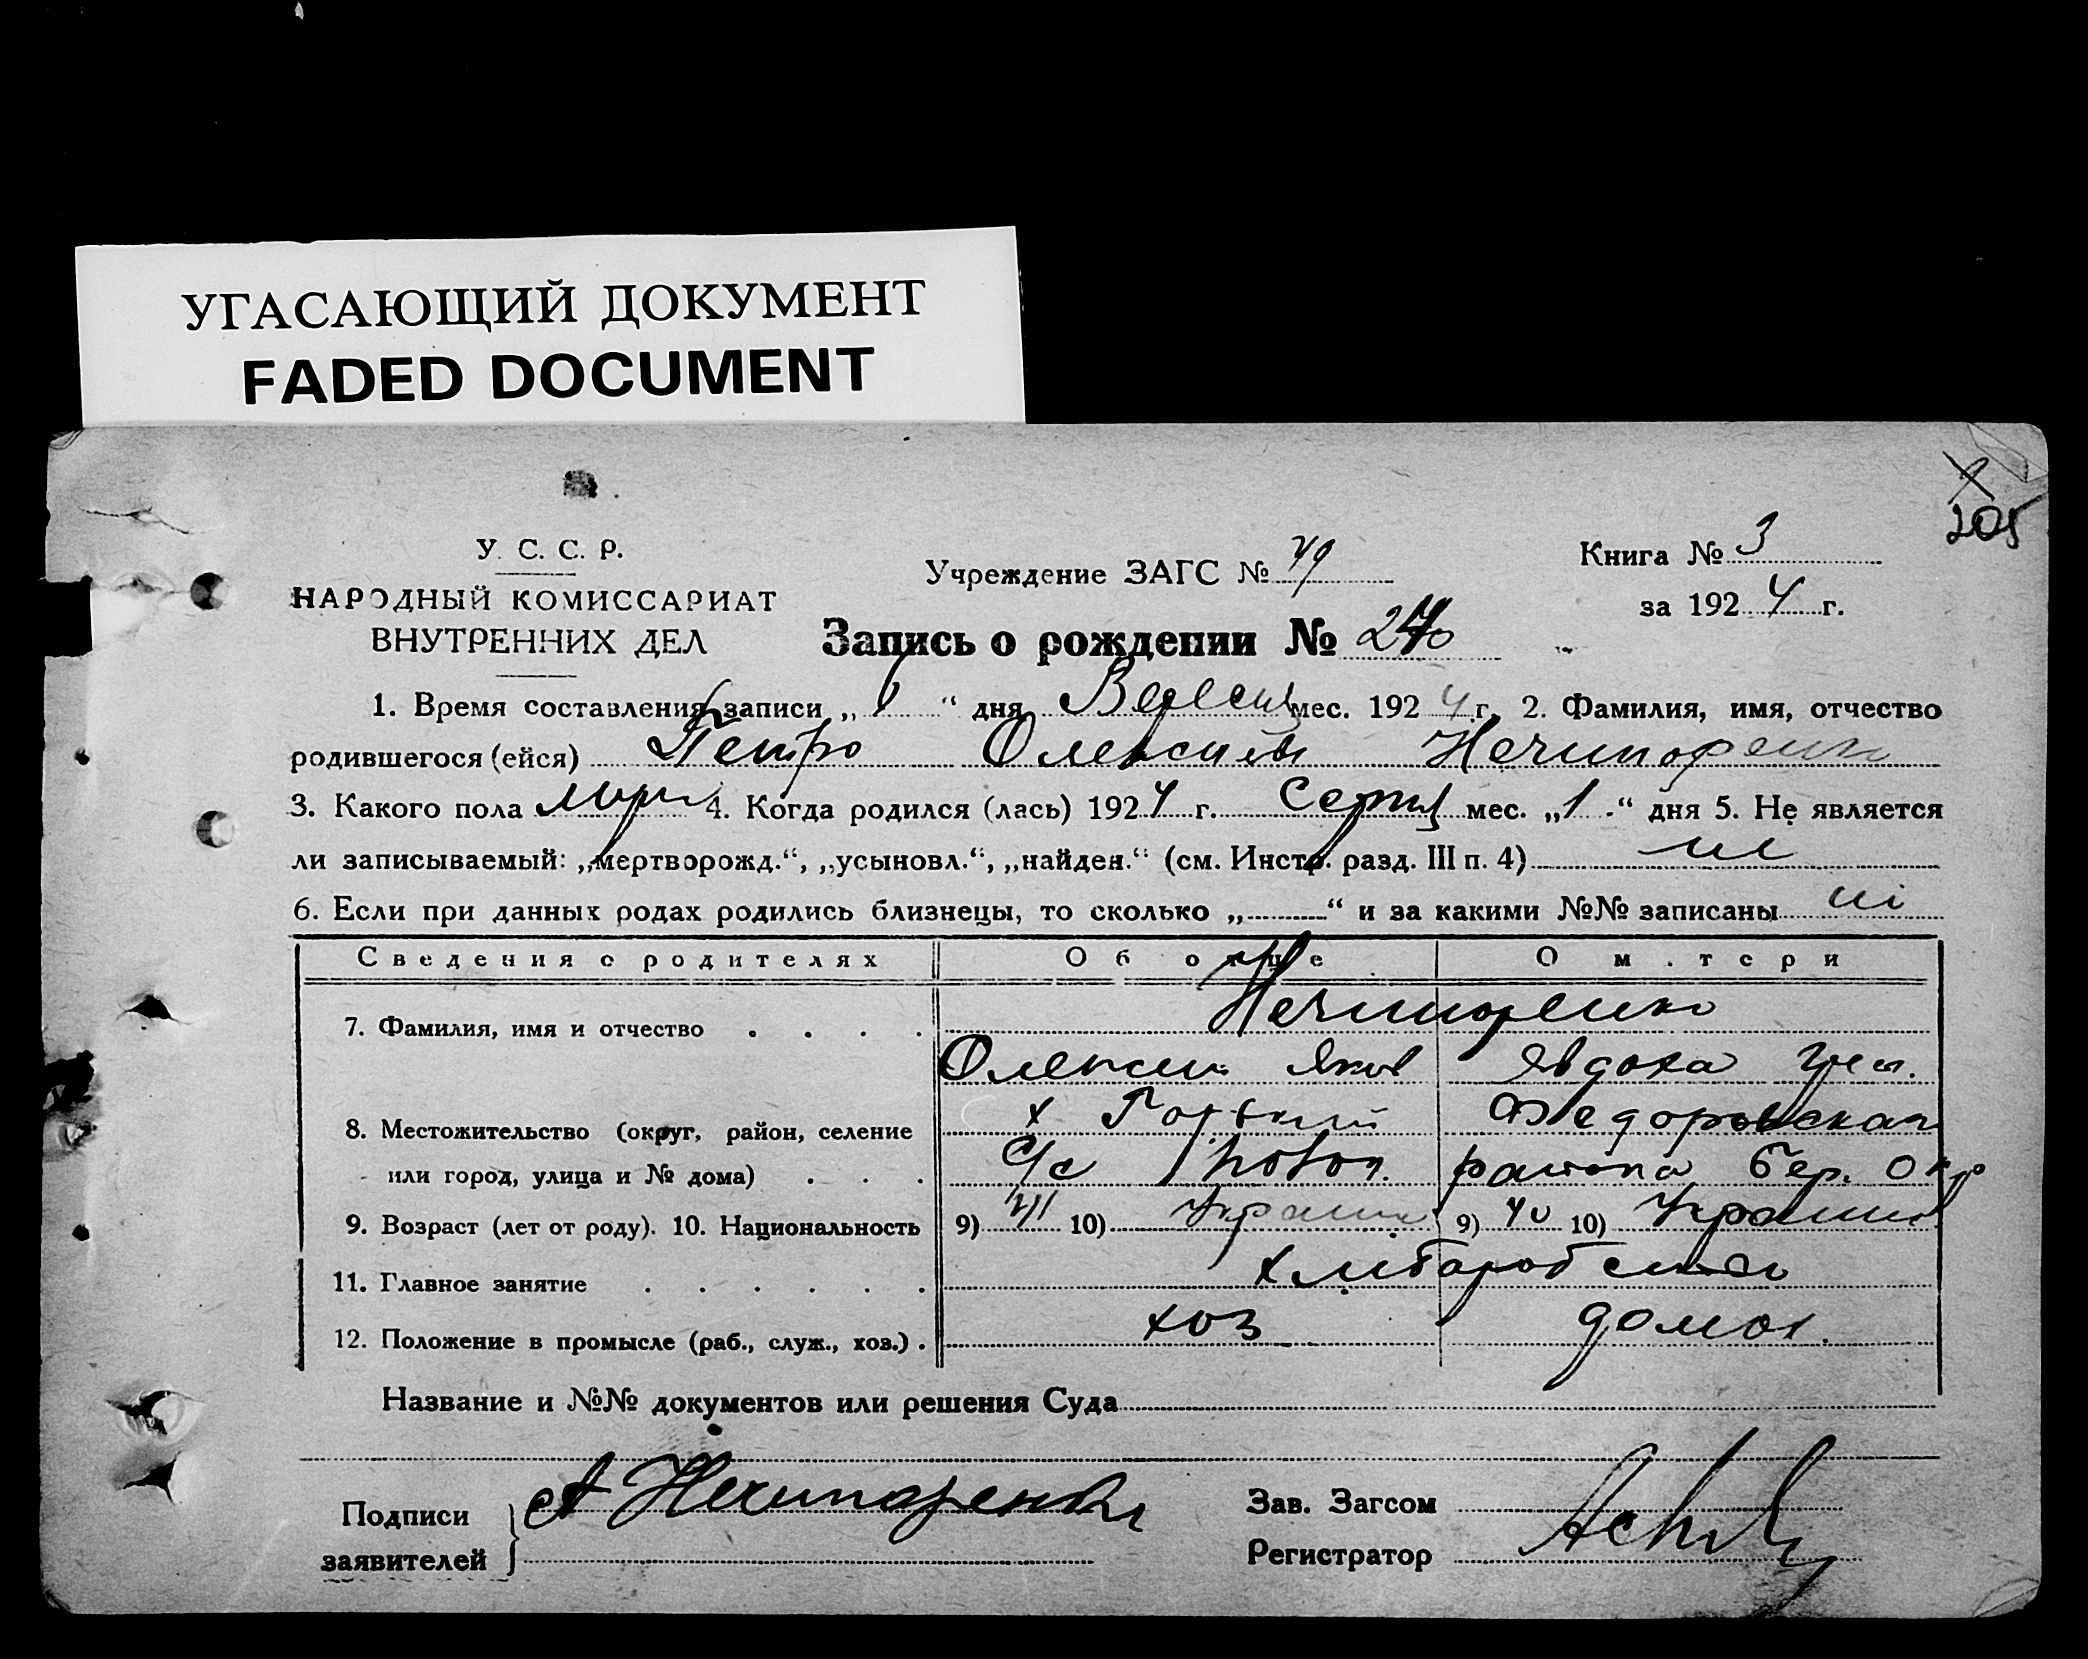 УГАСАЮЩИЙ ДОКУМЕНТ
FADED DOCUMENT
205
У. С. С. Р.
НАРОДНЫЙ КОМИССАРИАТ
ВНУТРЕННИХ ДЕЛ
Учреждение ЗАГС №
Книга № 3
за 1924 г.
Запись о рождении №
1. Время составления записи „ “ дня мес. 1924 г. 2. Фамилия, имя, отчество
родившегося (ейся) Петро Нечипоренко
3. Какого пола 4. Когда родился (лась) 1924 г. Серпня мес. „1“ дня 5. Не является
ли записываемый: „мертворожд.“, „усыновл.“, „найден.“ (см. Инстр. разд. III п. 4) ні
6. Если при данных родах родились близнецы, то сколько „ “ и за какими №№ записаны ні
Сведения о родителях Об отце О матери
7. Фамилия, имя и отчество Нечипоренко
Олексий Яков Явдоха
8. Местожительство (округ, район, селение х Горький
или город, улица и № дома) с/с района Бер. Окр
9. Возраст (лет от роду). 10. Национальность 9) 41 10) Украин 9) 40 10) Украин
11. Главное занятие
12. Положение в промысле (раб., служ., хоз.) хоз домох.
Название и №№ документов или решения Суда
Подписи
заявителей
А Нечипоренко
Зав. Загсом
Регистратор